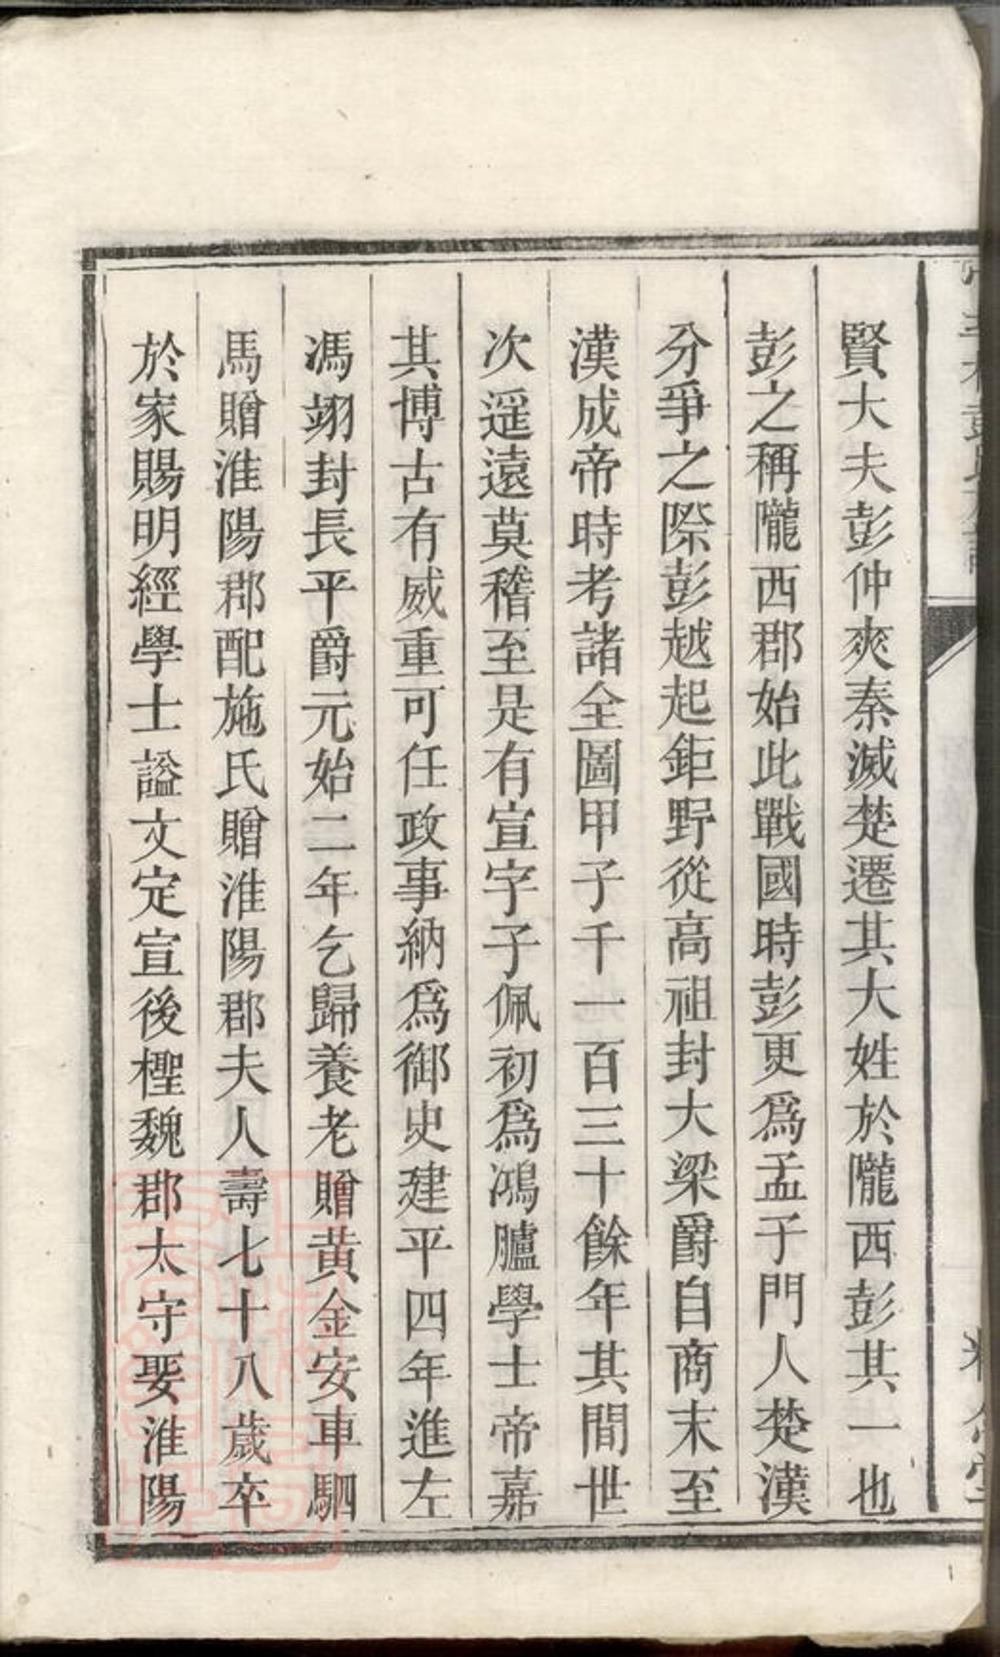 賢大夫彭仲爽秦滅楚遷其大姓於隴西彭其一也
彭之稱隴西郡始此戰國時彭更為孟子門人楚漢
分爭之際彭越起鉅野從高祖封大梁爵自商末至
漢成帝時考諸全圖甲子千一百三十餘年其間世
次遥遠莫稽至是有宣字子佩初為鴻臚學士帝嘉
其博古有威重可任政事納為御史建平四年進左
馮翊封長平爵元始二年乞歸養老贈黃金安車駟
馬贈淮陽郡配施氏贈淮陽郡夫人壽七十八歲卒
於家賜明經學士謚文定宣後檉魏郡太守娶淮陽